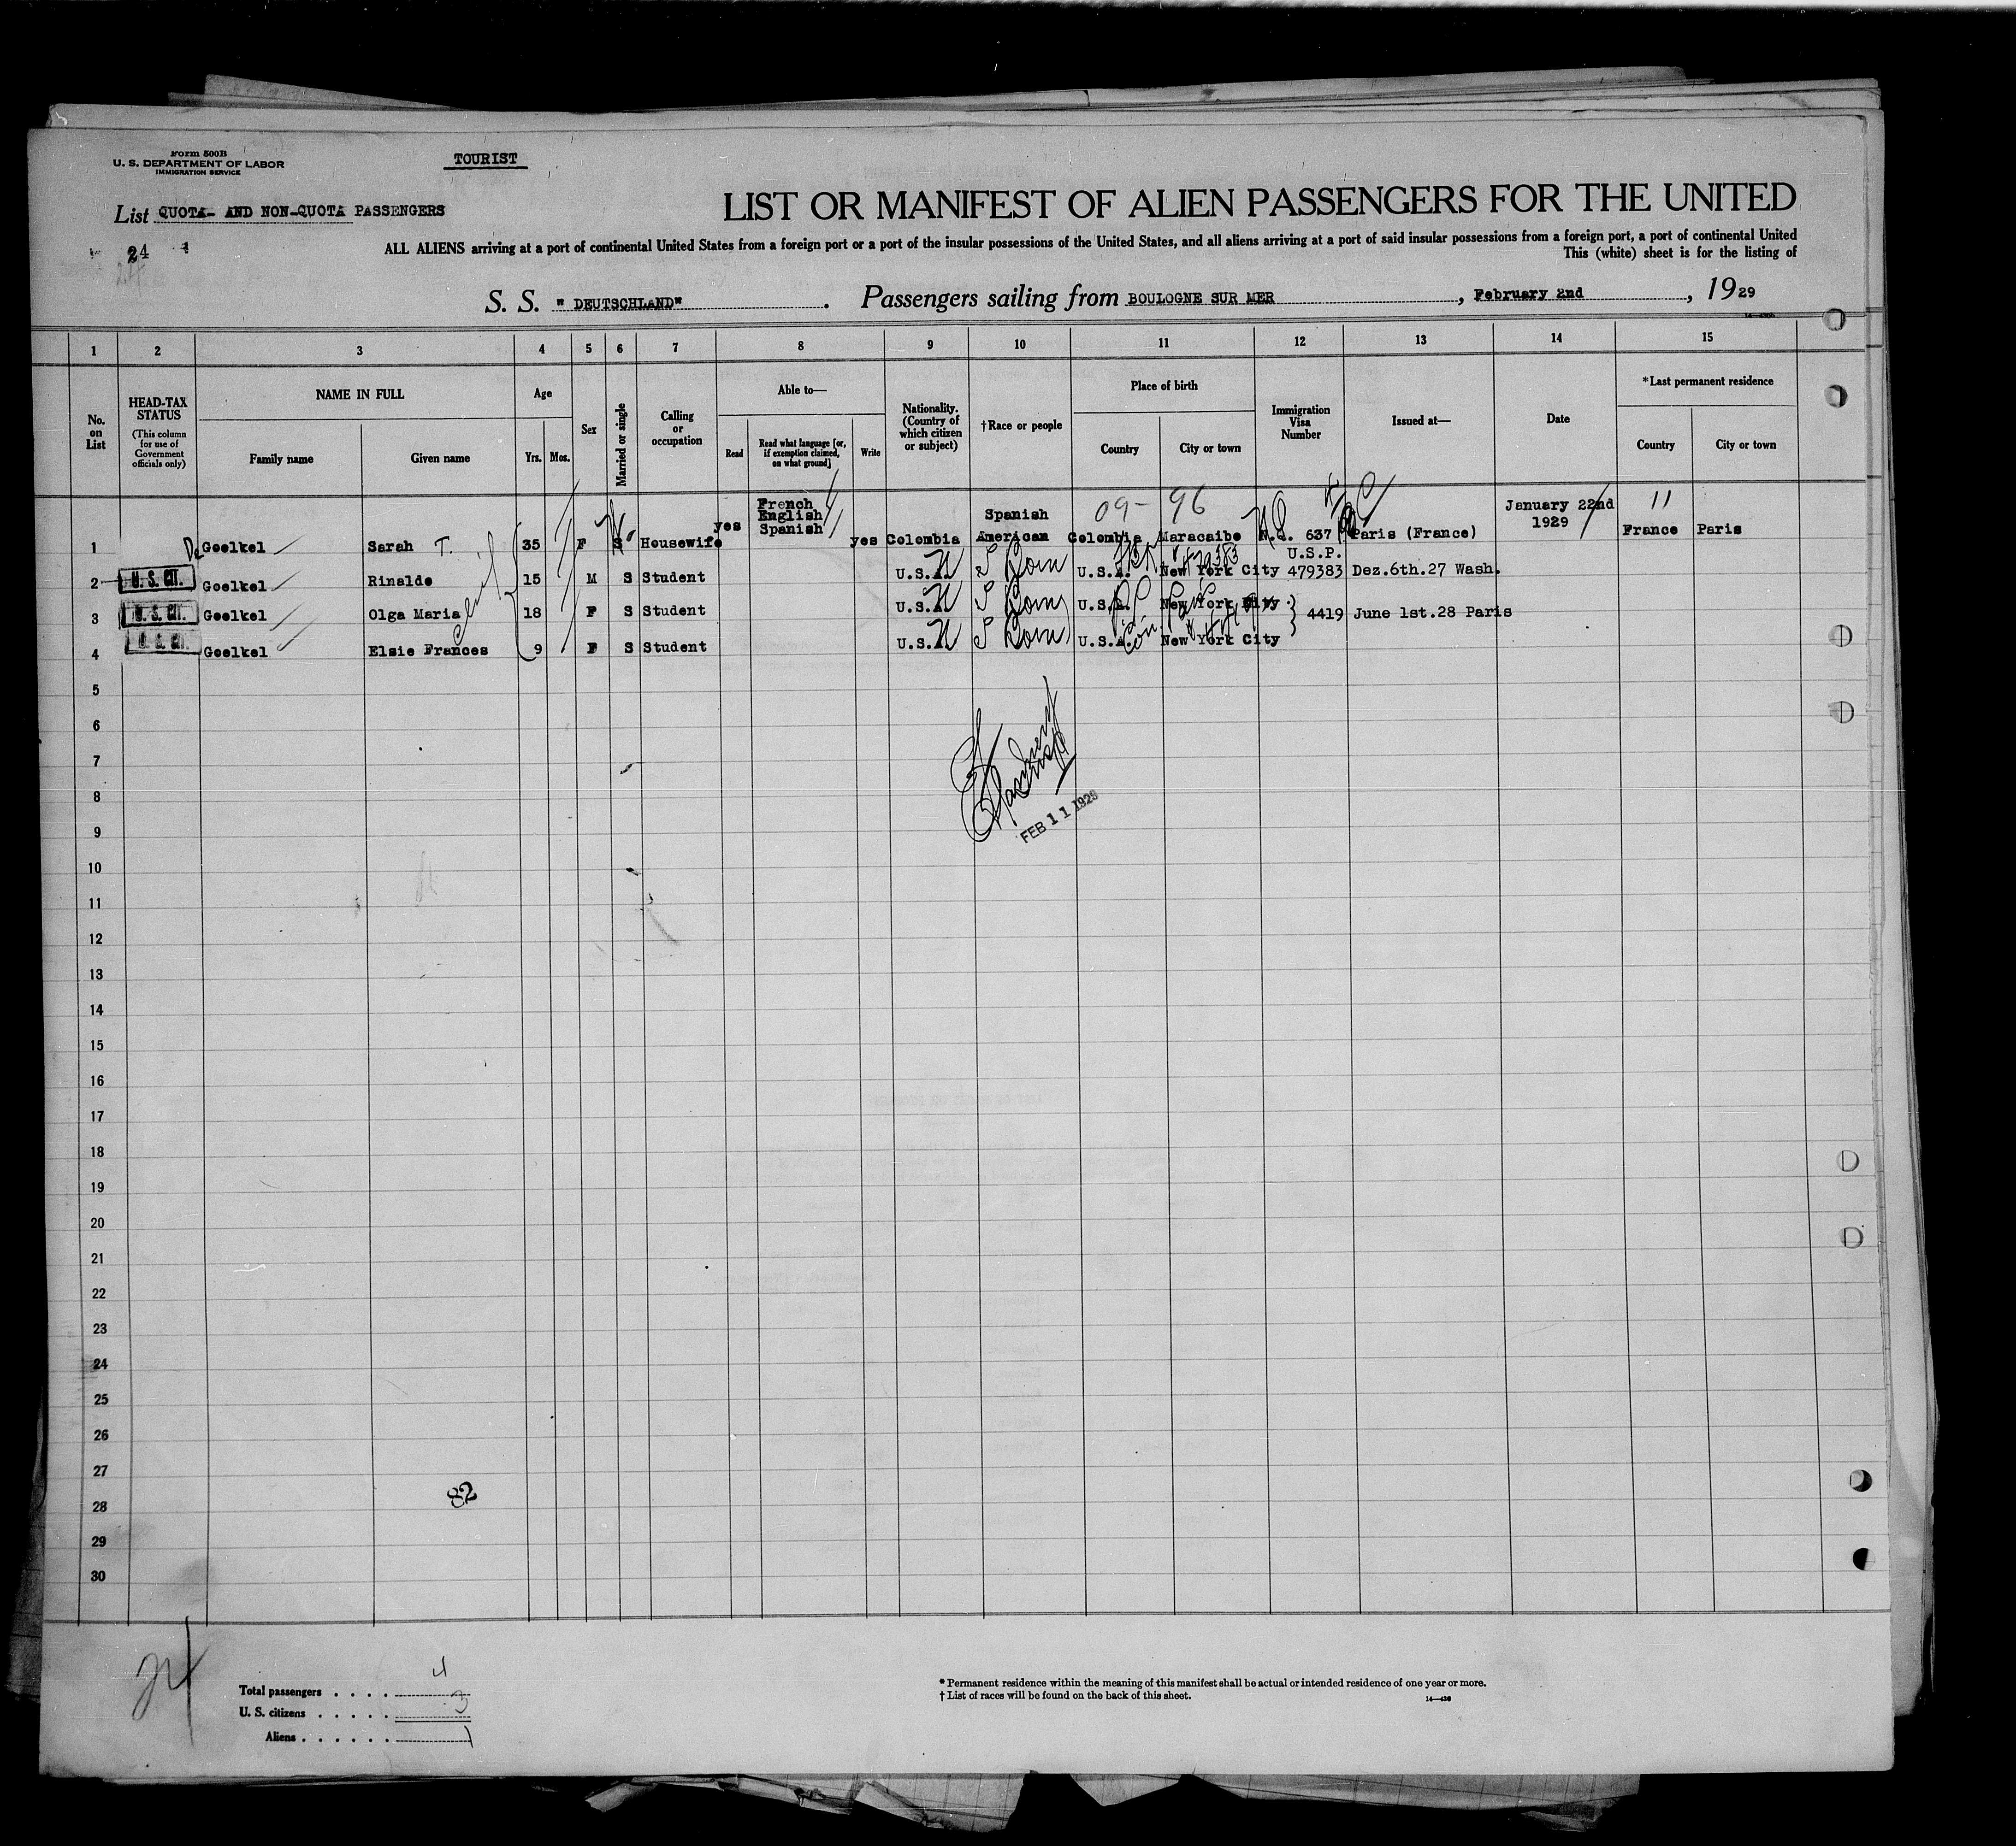 Form 500B
U. S. DEPARTMENT OF LABOR
IMMIGRATION SERVICE
TOURIST
List QUOTA- AND NON-QUOTA PASSENGERS
LIST OR MANIFEST OF ALIEN PASSENGERS FOR THE UNITED
24
ALL ALIENS arriving at a port of continental United States from a foreign port or a port of the insular possessions of the United States, and all aliens arriving at a port of said insular possessions from a foreign port, a port of continental United
This (white) sheet is for the listing of
S. S. " DEUTSCHLAND" . Passengers sailing from BOULOGNE SUR MER , February 2nd , 1929
1 2 3 4 5 6 7 8 9 10 11 12 13 14 15
No. on List
HEAD-TAX STATUS
(This column for use of Government officials only)
NAME IN FULL
Family name
Given name
Age
Yrs. Mos.
Sex
Married or single
Calling or occupation
Able to—
Read
Read what language [or, if exemption claimed, on what ground]
Write
Nationality. (Country of which citizen or subject)
†Race or people
Place of birth
Country
City or town
Immigration Visa Number
Issued at—
Date
*Last permanent residence
Country
City or town
09- 96
1 De Goelkel Sarah T. 35 F S Housewife yes French English Spanish yes Colombia Spanish American Colombia Maracaibo N.Q. 637 Paris (France) January 22nd 1929 11 France Paris
U.S.P.
2 U. S. CIT. Goelkel Rinaldo 15 M S Student U.S.A. S Born U.S.A. New York City 479383 Dez.6th.27 Wash.
3 U. S. CIT. Goelkel Olga Maria 18 F S Student U.S.A. S Born U.S.A. New York City 4419 June 1st.28 Paris
4 U. S. CIT. Goelkel Elsie Frances 9 F S Student U.S.A. S Born U.S.A. New York City
5
6
7
8
FEB 11 1929
9
10
11
12
13
14
15
16
17
18
19
20
21
22
23
24
25
26
27
28 82
29
30
24
Total passengers . . . . 4
U. S. citizens . . . . . 3
Aliens . . . . . . 1
* Permanent residence within the meaning of this manifest shall be actual or intended residence of one year or more.
† List of races will be found on the back of this sheet.